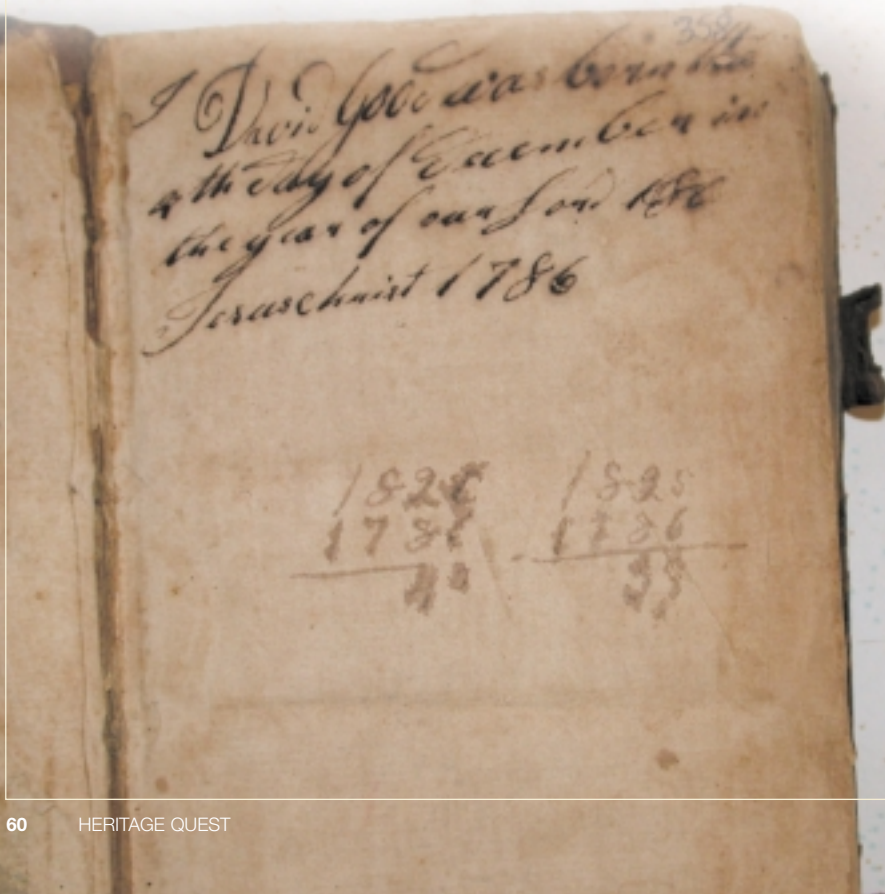 358
I David Good was born the
4th day of December in
the year of our Lord 178
Jesus christ 1786
1826 1825
1786 1786
40 39
60 HERITAGE QUEST